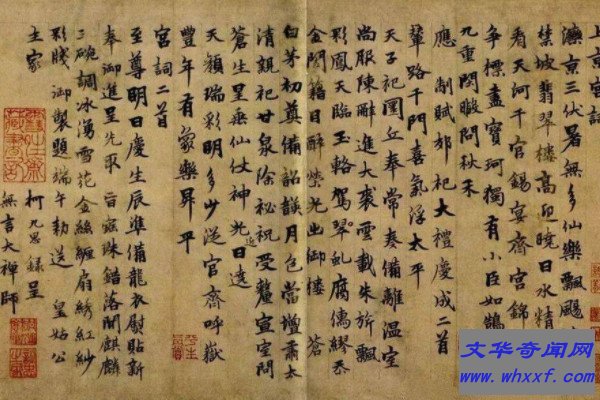 上京宮詞
灤京三伏暑無多仙樂飄颻
禁坡翡翠樓高 曉日水精
看天河千官錫宴齊宮錦
爭標盡寶珂獨有小臣如鵠
九重閤 問秋禾
應制賦郊祀大禮慶成二首
輦路千門喜氣浮太平
天子祀圜丘奉常奏備離溫室
尚服陳辭進大裘雲載朱旂飄
彩鳳天臨玉輅駕翠虬腐儒繆忝
金閨籍日醉榮光出御樓 蒼
白茅初奠備韶頀月色當壇肅太
清親祀甘泉除祕祝受釐宣室問
蒼生星垂仙仗神光近日遶
天顏瑞彩明多少從官齊呼嶽
豐年有象樂昇平
宮詞二首
至尊明日慶生辰準備龍衣熨貼新
奉御進呈先取旨 珠錯落間麒麟
三碗調冰湧雪花金絲纏扇綉紅紗
彩牋御製題端午勅送 皇姑公
主家
柯九思録呈
無言大禪師
文华奇闻网
www.whxxf.com